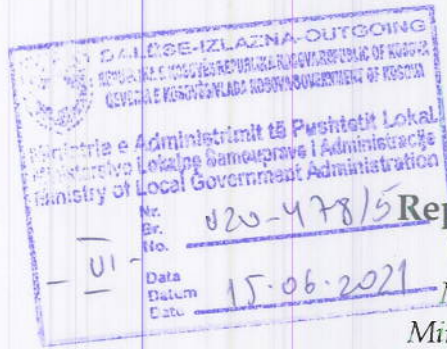 DALËSE-IZLAZNA-OUTGOING
REPUBLIKA E KOSOVËS/REPUBLIKA KOSOVA/REPUBLIC OF KOSOVO
QEVERIA E KOSOVËS/VLADA KOSOVA/GOVERNMENT OF KOSOVA
Ministria e Administrimit të Pushtetit Lokal
Ministarstvo Lokalne Samouprave i Administracije
Ministry of Local Government Administration
Nr.
Br.
No.
020-478/5
Rep
- VI -
Data
Datum
Date
15.06.2021
Mi